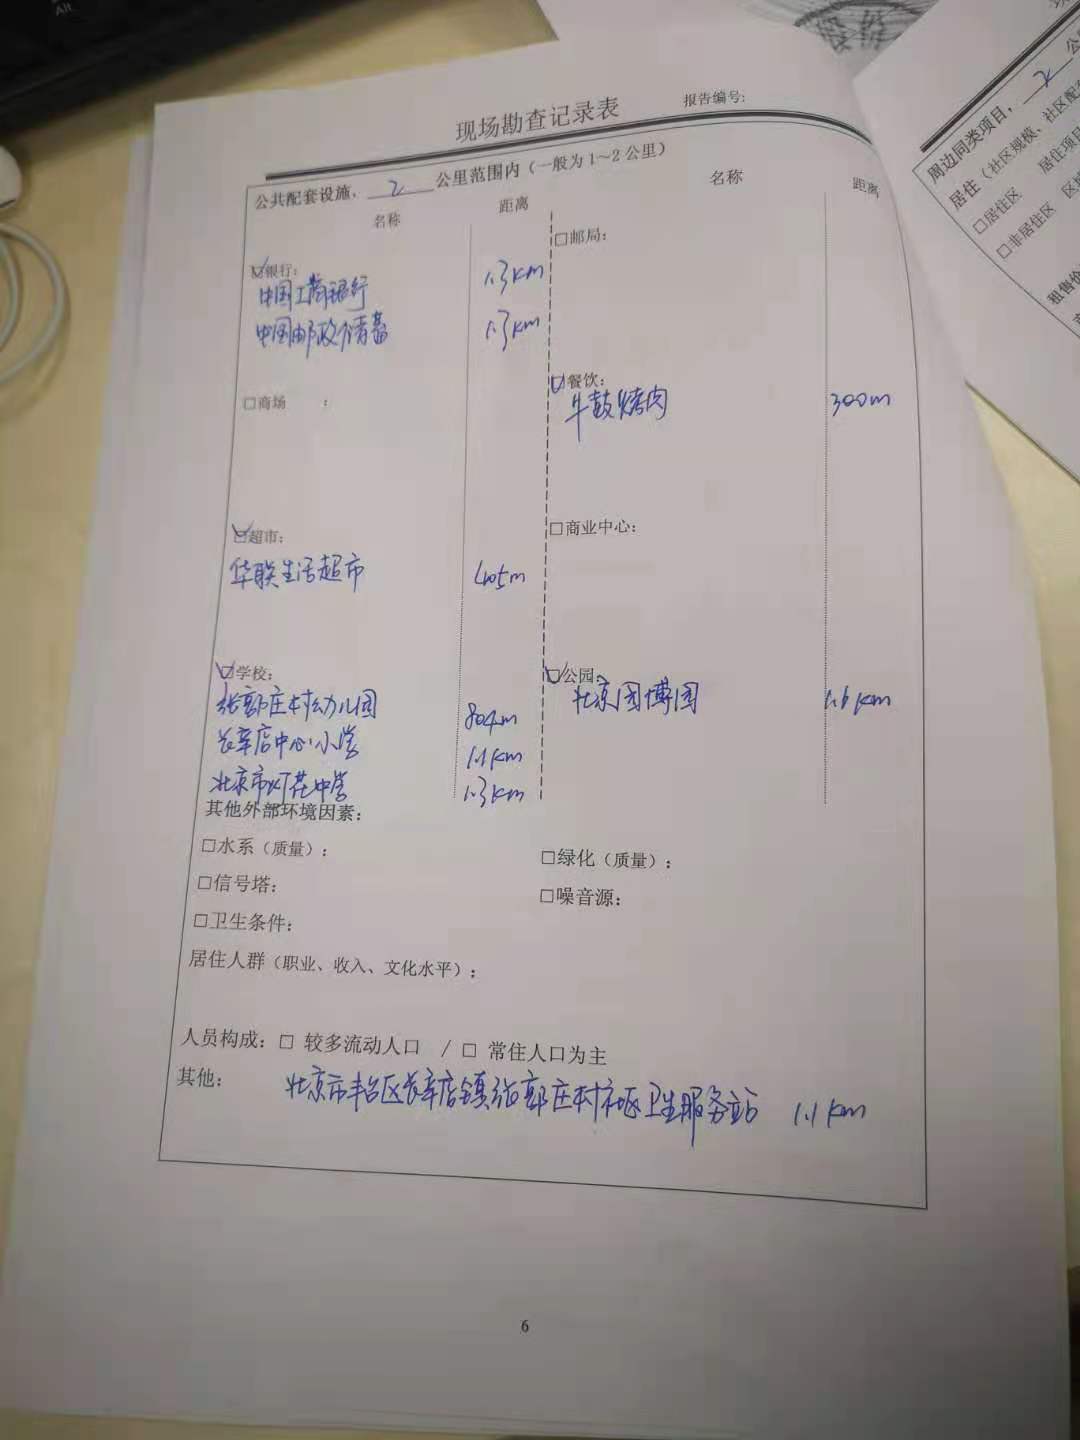 Alt
现场勘查记录表
报告编号:
公共配套设施, 2 公里范围内（一般为1～2公里）
名称 距离 名称 距离
☑银行: □邮局:
中国工商银行 1.3km
中国邮政储蓄 1.3km
□商场 : ☑餐饮:
牛鼓烤肉 300m
☑超市: □商业中心:
华联生活超市 405m
☑学校: ☑公园:
张郭庄村幼儿园 804m 北京园博园 1.6km
长辛店中心小学 1.1km
北京市 中学 1.3km
其他外部环境因素:
□水系（质量）: □绿化（质量）:
□信号塔: □噪音源:
□卫生条件:
居住人群（职业、收入、文化水平）:
人员构成: □ 较多流动人口 / □ 常住人口为主
其他: 北京市丰台区长辛店镇张郭庄村社区卫生服务站 1.1km
6
周边同类项目, 2 公
居住（社区规模、社区配
□居住区 居住项目
□非居住区 区
租售价